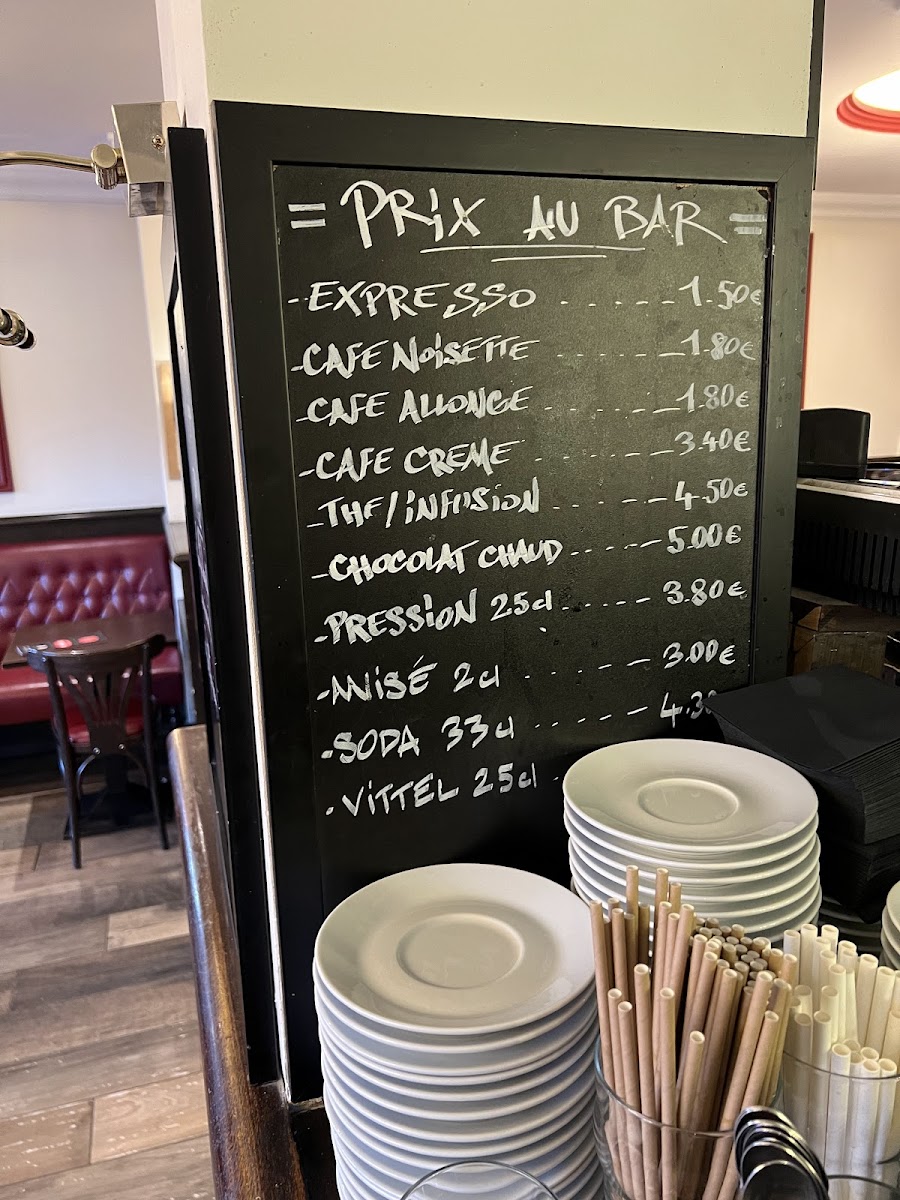 = PRiX AU BAR =
- EXPRESSO ..... 1.50€
- CAFE NOiSETTE ..... 1.80€
- CAFE ALLONGE ..... 1.80€
- CAFE CREME ..... 3.40€
- THE/iNFUSiON ..... 4.50€
- CHOCOLAT CHAUD ..... 5.00€
- PRESSiON 25cl ..... 3.80€
- ANiSÉ 2cl ..... 3.00€
- SODA 33cl .....
- ViTTEL 25cl